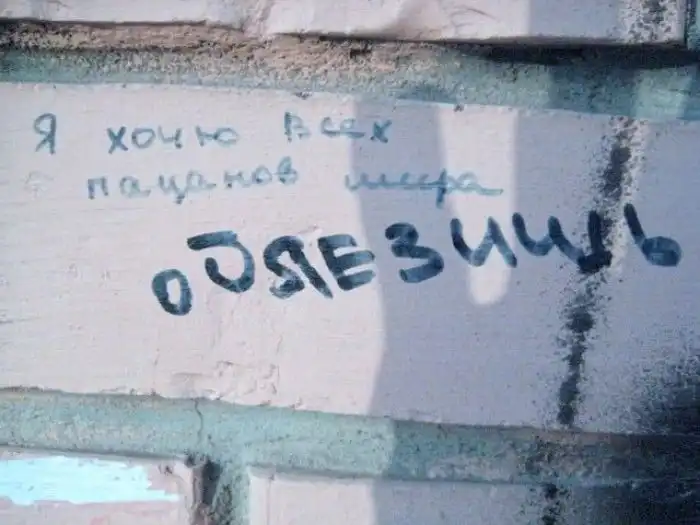 Я хочю Всех
пацанов мира
оБЛЕЗИШЬ